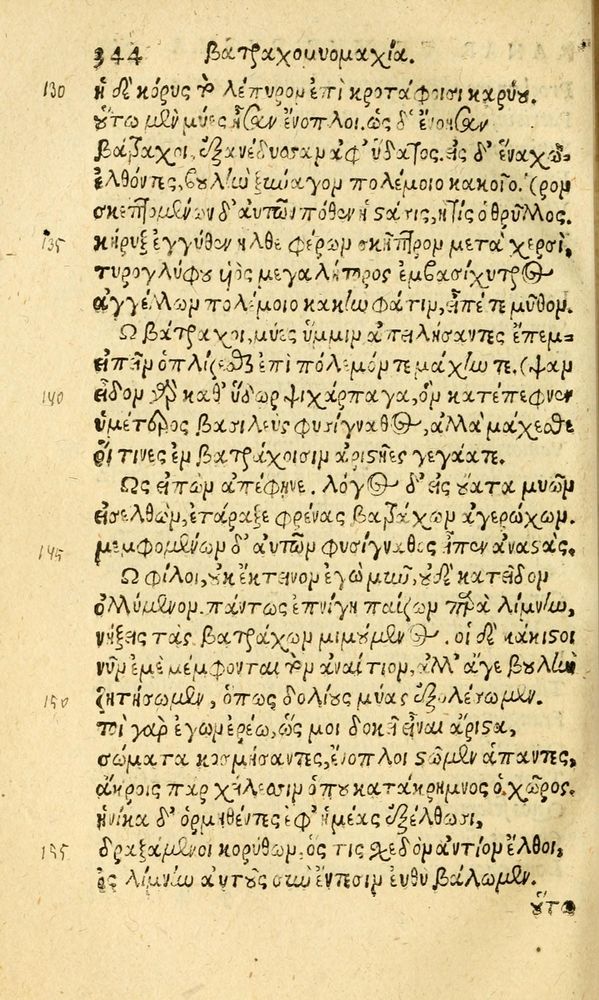 344 βατραχομυομαχία.
130 ἡ δὲ κόρυς τὸ λέπυρον ἐπὶ κροτάφοισι καρύου.
οὕτω μὲν μύες ἦσαν ἔνοπλοι. ὡς δ' ἐνόησαν
βάτραχοι, ἐξανέδυσαν ἀφ' ὕδατος. εἰς δ' ἕνα χῶ-
ἐλθόντες, βουλὴν ξύναγον πολέμοιο κακοῖο. (ρον
σκεπτομένων δ' αὐτῶν πόθεν ἡ στάσις, ἢ τίς ὁ θρύλλος.
135 κῆρυξ ἐγγύθεν ἦλθε φέρων σκῆπτρον μετὰ χερσί,
τυρογλύφου υἱὸς μεγαλήτορος ἐμβασίχυτρος
ἀγγέλλων πολέμοιο κακὴν φάτιν, εἶπέ τε μῦθον.
Ὦ βάτραχοι, μύες ὔμμιν ἀπειλήσαντες ἔπεμ-
εἰπεῖν ὁπλίζεσθαι ἐπὶ πόλεμόν τε μάχην τε. (ψαν
140 εἶδον γὰρ καθ' ὕδωρ ψιχάρπαγα, ὃν κατέπεφνεν
ὑμέτερος βασιλεὺς φυσίγναθος, ἀλλὰ μάχεσθε
οἵ τινες ἐν βατράχοισιν ἀριστῆες γεγάατε.
Ὣς εἰπὼν ἀπέφηνε. λόγος δ' εἰς οὔατα μυῶν
εἰσελθὼν, ἐτάραξε φρένας βατράχων ἀγερώχων.
145 μεμφομένων δ' αὐτῶν φυσίγναθος εἶπεν ἀναστάς.
Ὦ φίλοι, οὐκ ἔκτεινον ἐγὼ μῦν, οὐδὲ κατεῖδον
ὀλλύμενον. πάντως ἐπνίγη παίζων παρὰ λίμνην,
νήξεις τὰς βατράχων μιμούμενος. οἱ δὲ κάκιστοι
νῦν ἐμὲ μέμφονται τὸν ἀναίτιον, ἀλλ' ἄγε βουλὴν
150 ζητήσωμεν, ὅπως δολίους μύας ἐξολέσωμεν.
τοὶ γὰρ ἐγὼν ἐρέω, ὥς μοι δοκεῖ εἶναι ἄριστα,
σώματα κοσμήσαντες, ἔνοπλοι στῶμεν ἅπαντες,
ἄκροις πὰρ χείλεσιν ὅπου κατάκρημνος ὁ χῶρος.
ἡνίκα δ' ὁρμηθέντες ἐφ' ἡμέας ἐξέλθωσι,
155 δραξάμενοι κορύθων, ὅς τις σχεδὸν ἀντίον ἔλθοι,
ἐς λίμνην αὐτοὺς σὺν ἔντεσιν εὐθὺ βάλωμεν.
οὕτω